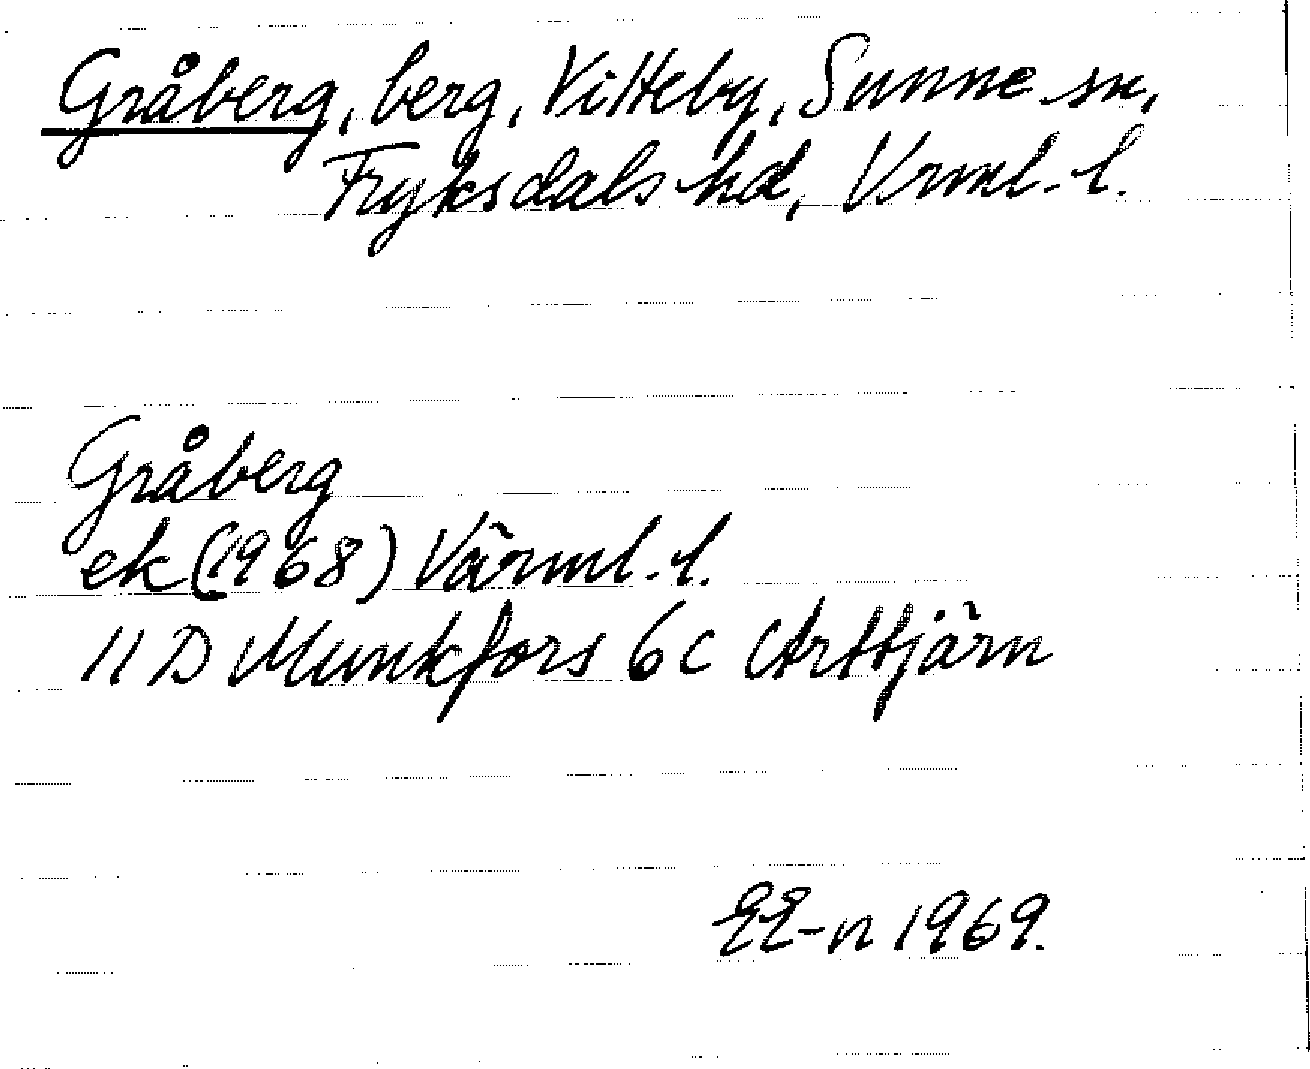 Gråberg, berg, Vitteby, Sunne sn,
Fryksdals hd, Vrml. l.
Gråberg
ek (1968) Värml. l.
11 D Munkfors 6c Arttjärn
EE-n 1969.